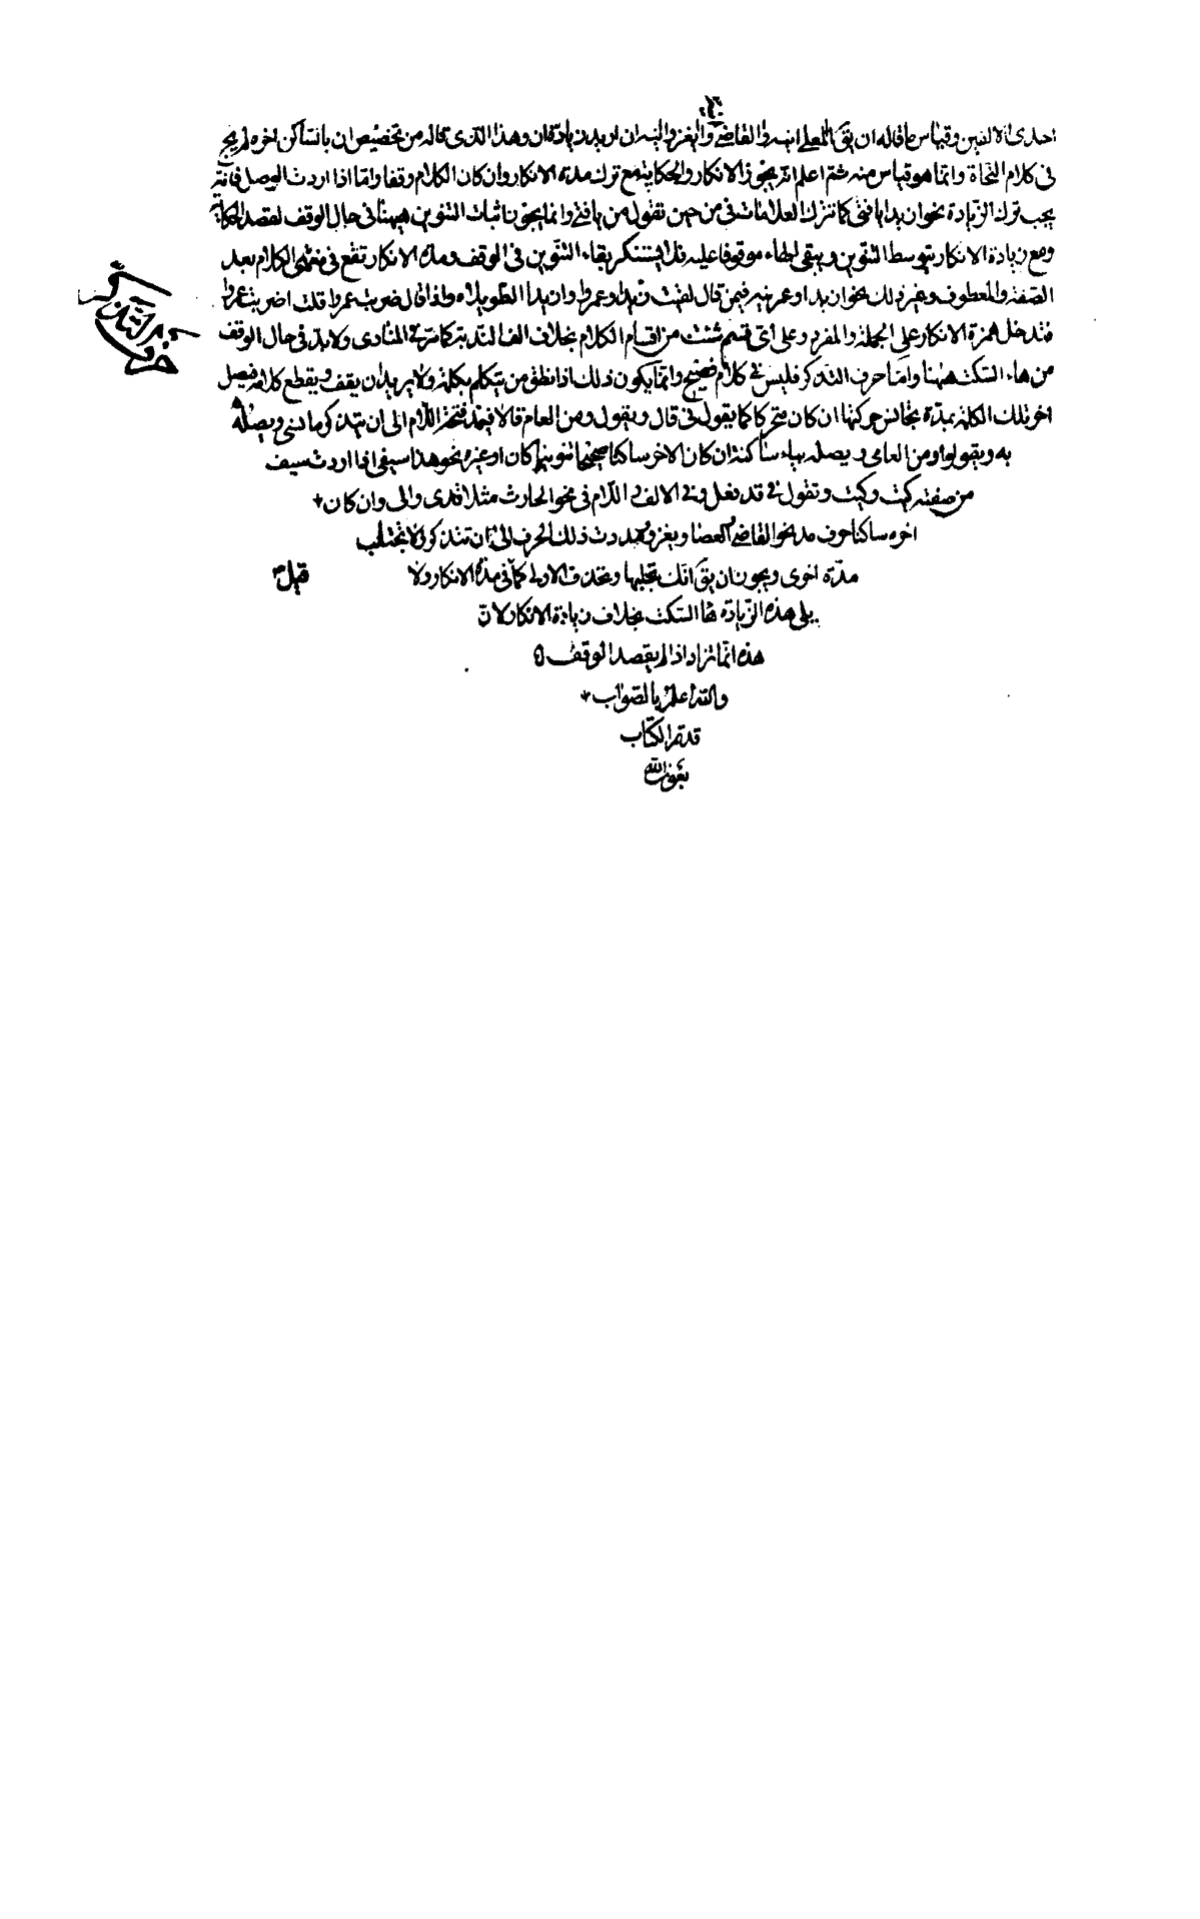 احدى الالفين وقياس ما قاله ان يق المعلى انيه والقاضى وايغزوانيه ان اريد زيادة ان وهذا الذى قاله من تخصيص ان بالساكن اخره لم يجئ
فى كلام النحاة وانما هو قياس منه ثم اعلم انه يجوز فى الانكار والحكاية مع ترك مدة الانكار وان كان الكلام وقفا واما اذا اردت الوصل فانه
يجب ترك الزيادة نحو ازيدا يا فتى كما تترك العلامات فى من حين تقول من يا فتى وانما يجوز اثبات التنوين ههنا فى حال الوقف لقصد الحكاية
ومع زيادة الانكار يتوسط التنوين ويبقى الهاء موقوفا عليه فلا يستنكر بقاء التنوين فى الوقف ومدة الانكار تقع فى منتهى الكلام بعد
الصفة والمعطوف وغير ذلك نحو ازيدا وعمرنيه فيمن قال لقيت زيدا وعمرا وازيدا الطويلاه واذا قال ضربت عمرا قلت اضربت عمراه
فتدخل همزة الانكار على الجملة والمفرد وعلى اى قسم شئت من اقسام الكلام بخلاف الف الندبة كما مر فى المنادى ولا بد فى حال الوقف
من هاء السكت ههنا واما حرف التذكر فليس فى كلام فصيح وانما يكون ذلك اذا نطق من يتكلم بكلمة ولا يريد ان يقف ويقطع كلامه فيصل
اخر تلك الكلمة بمدة تجانس حركتها ان كان متحركا كما يقول فى قال ويقول ومن العام قالا فيمد فتحة اللام الى ان يتذكر ما نسى ويصله
به ويقولوا ومن العامى ويصله بياء ساكنة ان كان الاخر ساكنا صحيحا تنوينا كان او غيره نحو هذا سيفنى اذا اردت سيف
من صفته كيت وكيت وتقول فى قد يفعل وفى الالف واللام فى نحو الحارث مثلا قدى والى وان كان
اخره ساكنا حرف مد نحو القاضى والعصا ويغزو مددت ذلك الحرف الى ان تتذكر ولا تجتلب
مدة اخرى ويجوز ان يق انك تجلبها وتحذف الاولى كما فى مدة الانكار ولا
يلى هذه الزيادة هاء السكت بخلاف زيادة الانكار لان
هذه انما تزاد اذا لم يقصد الوقف
والله اعلم بالصواب
قد تم الكتاب
بعون الله
حرف التذكر